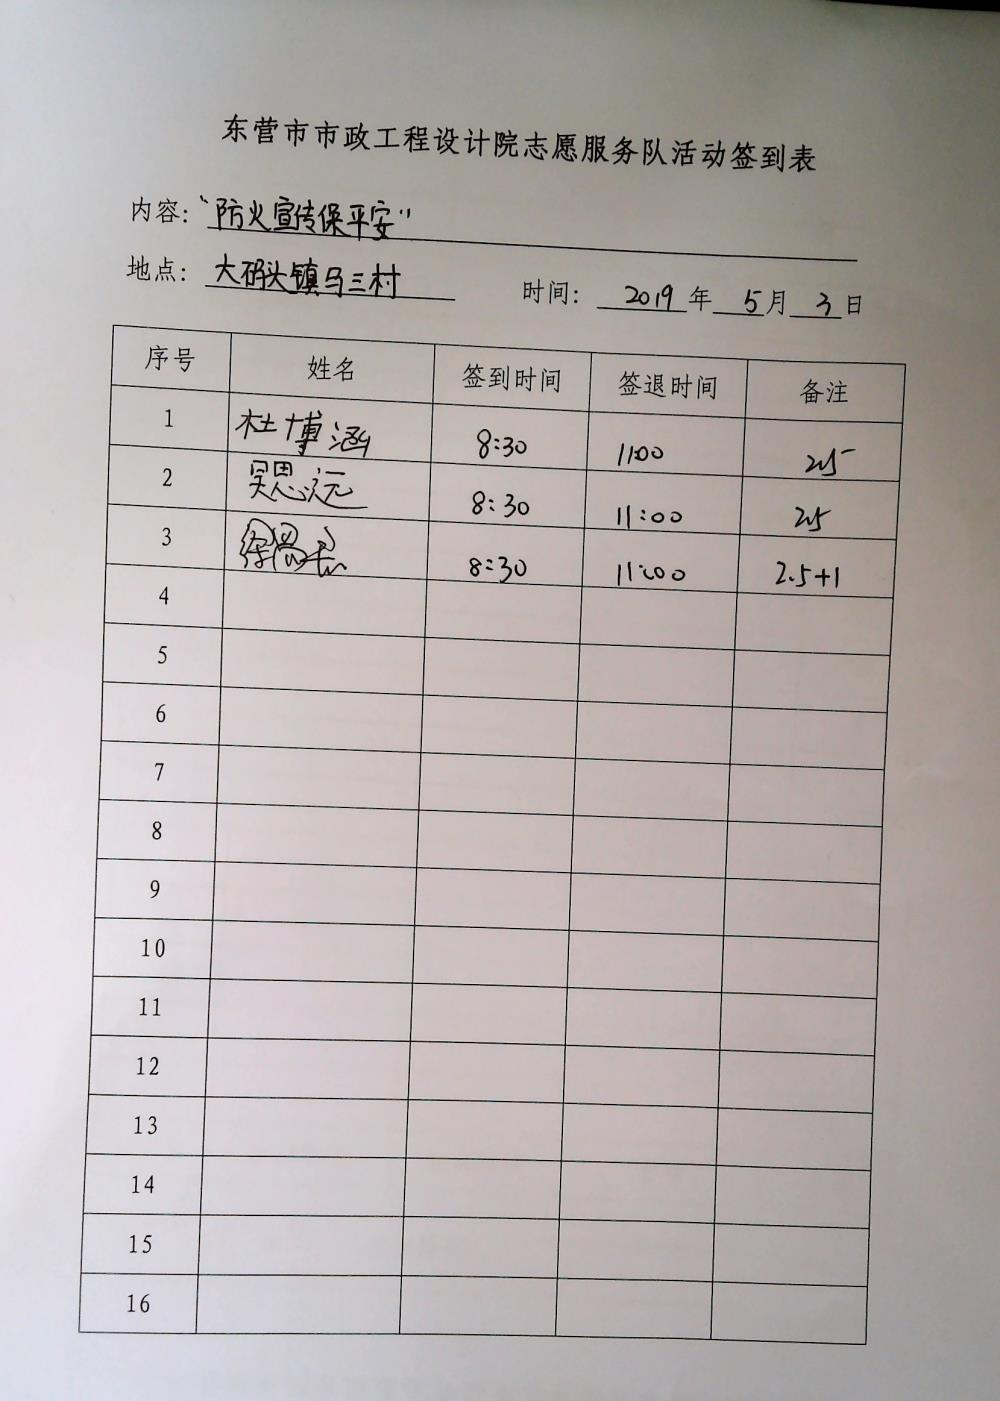 东营市市政工程设计院志愿服务队活动签到表
内容：“防火宣传保平安”
地点：大码头镇马三村 时间：2019年5月3日
序号 姓名 签到时间 签退时间 备注
1 杜博涵 8:30 11:00 2.5
2 吴思远 8:30 11:00 2.5
3 8:30 11:00 2.5+1
4
5
6
7
8
9
10
11
12
13
14
15
16